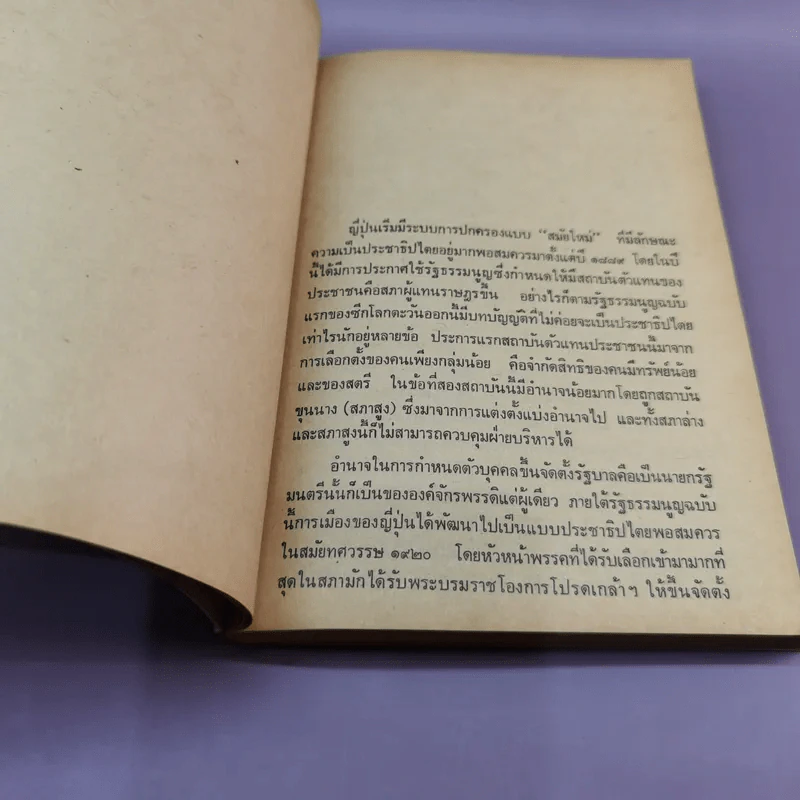 ญี่ปุ่นเริ่มมีระบบการปกครองแบบ “สมัยใหม่” ที่มีลักษณะ
ความเป็นประชาธิปไตยอยู่มากพอสมควรมาตั้งแต่ปี ๑๘๘๙ โดยในปี
นี้ได้มีการประกาศใช้รัฐธรรมนูญซึ่งกำหนดให้มีสถาบันตัวแทนของ
ประชาชนคือสภาผู้แทนราษฎรขึ้น อย่างไรก็ตามรัฐธรรมนูญฉบับ
แรกของซีกโลกตะวันออกนี้มีบทบัญญัติที่ไม่ค่อยจะเป็นประชาธิปไตย
เท่าไรนักอยู่หลายข้อ ประการแรกสถาบันตัวแทนประชาชนนี้มาจาก
การเลือกตั้งของคนเพียงกลุ่มน้อย คือจำกัดสิทธิของคนมีทรัพย์น้อย
และของสตรี ในข้อที่สองสถาบันนี้มีอำนาจน้อยมากโดยถูกสถาบัน
ขุนนาง (สภาสูง) ซึ่งมาจากการแต่งตั้งแบ่งอำนาจไป และทั้งสภาล่าง
และสภาสูงนี้ก็ไม่สามารถควบคุมฝ่ายบริหารได้
อำนาจในการกำหนดตัวบุคคลขึ้นจัดตั้งรัฐบาลคือเป็นนายกรัฐ
มนตรีนั้นก็เป็นขององค์จักรพรรดิแต่ผู้เดียว ภายใต้รัฐธรรมนูญฉบับ
นี้การเมืองของญี่ปุ่นได้พัฒนาไปเป็นแบบประชาธิปไตยพอสมควร
ในสมัยทศวรรษ ๑๙๒๐ โดยหัวหน้าพรรคที่ได้รับเลือกเข้ามามากที่
สุดในสภามักได้รับพระบรมราชโองการโปรดเกล้าฯ ให้ขึ้นจัดตั้ง